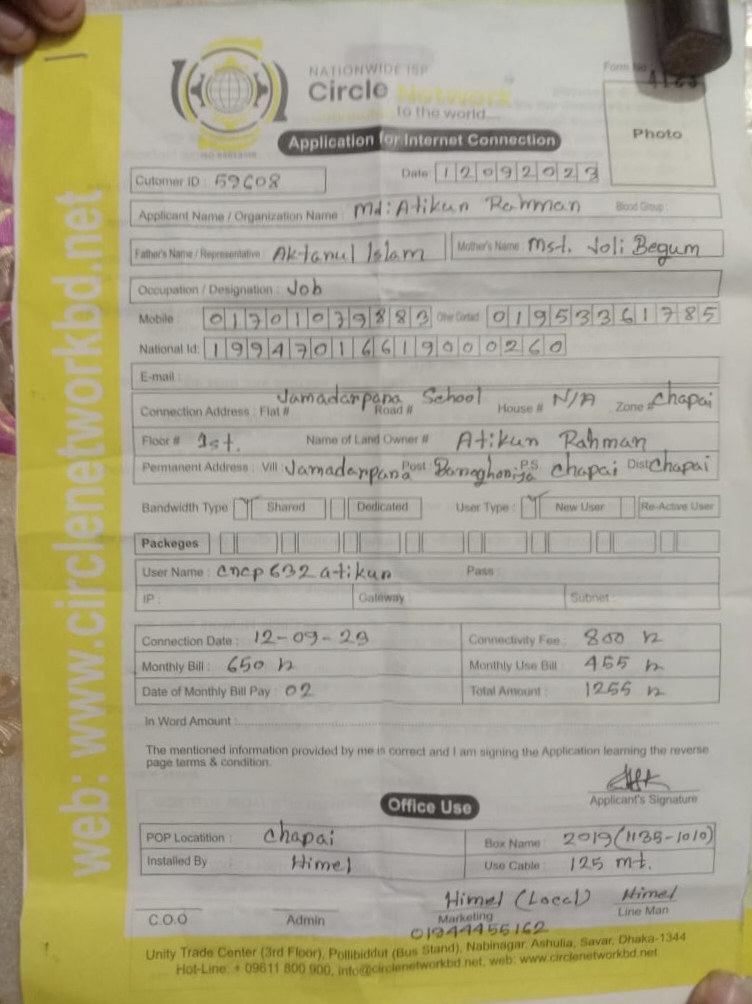 NATIONWIDE ISP
Circle Network
to the world....
Form No
Application for Internet Connection
Photo
Cutomer ID : 59608
Date 12092023
Applicant Name / Organization Name : Md: Atikun Rahman Blood Group :
Father's Name / Representative : Aktanul Islam Mother's Name : Mst. Joli Begum
Occupation / Designation : Job
Mobile : 01701079883 Other Contact 01953361785
National Id: 19947016619000260
E-mail :
Connection Address : Flat # Jamadarpana School Road # House # N/A Zone # Chapai
Floor # 1st. Name of Land Owner # Atikun Rahman
Permanent Address : Vill : Jamadanpana Post : P.S Chapai Dist: Chapai
Bandwidth Type Shared Dedicated User Type : New User Re-Active User
Packeges
User Name : cncp632atikun Pass :
IP : Gateway Subnet :
Connection Date : 12-09-23 Connectivity Fee : 800
Monthly Bill : 650 Monthly Use Bill : 455
Date of Monthly Bill Pay : 02 Total Amount : 1255
In Word Amount :
The mentioned information provided by me is correct and I am signing the Application learning the reverse
page terms & condition.
Applicant's Signature
Office Use
POP Locatition : Chapai Box Name : 2019(1135-1010)
Installed By Himel Use Cable : 125 mt.
Himel (Local) Himel
C.O.O Admin Marketing Line Man
01944455162
Unity Trade Center (3rd Floor), Pollibiddut (Bus Stand), Nabinagar, Ashulia, Savar, Dhaka-1344
Hot-Line: + 09611 800 900, info@circlenetworkbd.net, web: www.circlenetworkbd.net
web: www.circlenetworkbd.net